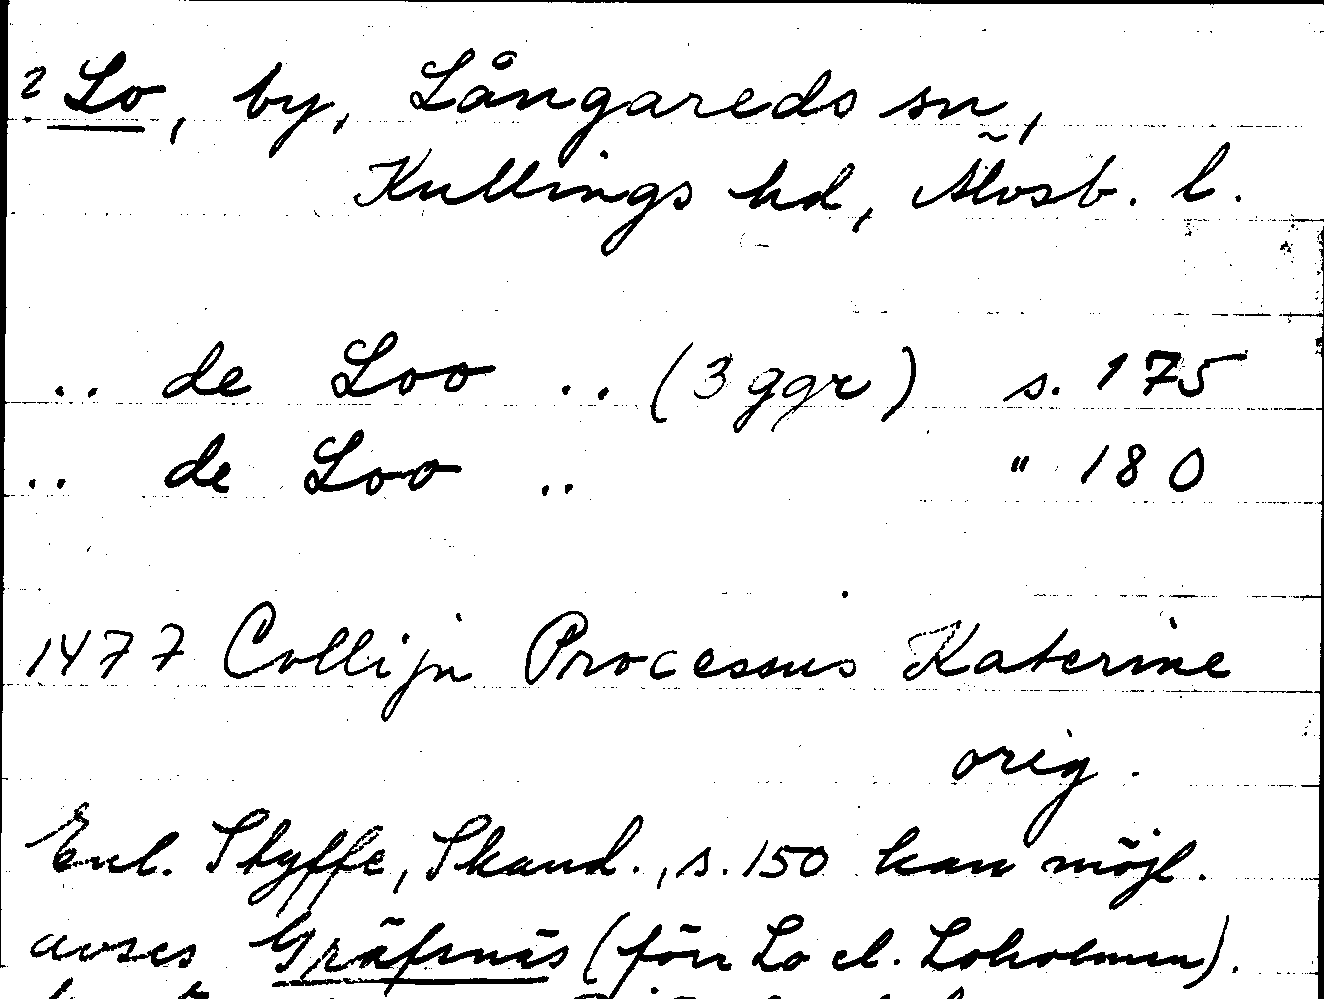 ? Lo, by, Långareds sn,
Kullings hd, Älvsb. l.
.. de Loo .. (3 ggr) s. 175
.. de Loo .. " 180
1477 Collijn Processus Katerine
orig.
Enl. Styffe, Skand., s. 150 kan möjl.
avses Gräfsnäs (förr Lo el. Loholmen).